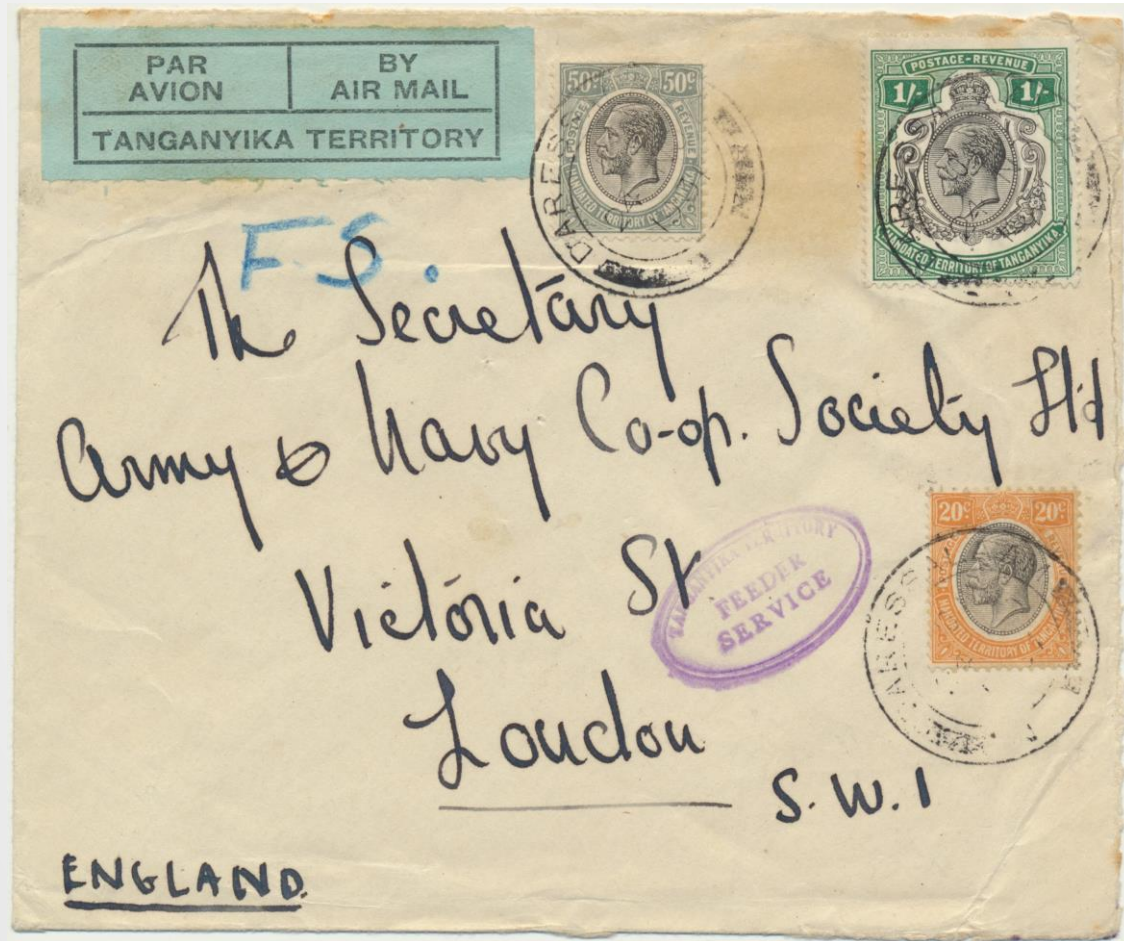 PAR AVION
BY AIR MAIL
TANGANYIKA TERRITORY
50c 50c
POSTAGE REVENUE
MANDATED TERRITORY OF TANGANYIKA
DAR-ES-
POSTAGE-REVENUE
1/- 1/-
MANDATED TERRITORY OF TANGANYIKA
F.S.
The Secretary
Army & Navy Co-op. Society Ltd
Victoria St.
London
S.W.1
ENGLAND
TANGANYIKA TERRITORY
FEEDER
SERVICE
20c 20c
MANDATED TERRITORY OF